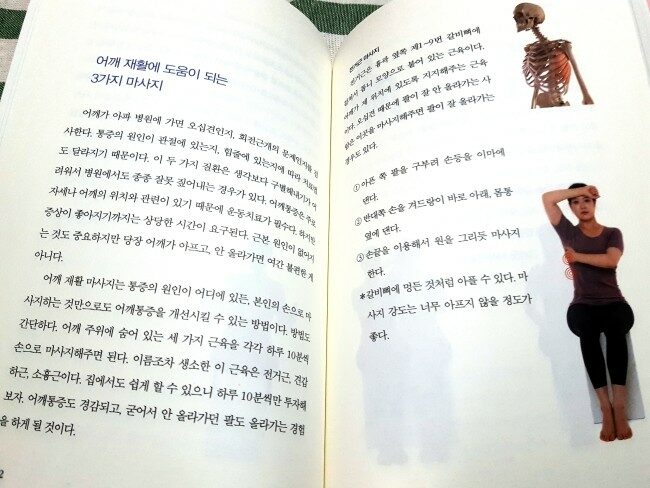 어깨 재활에 도움이 되는
3가지 마사지
어깨가 아파 병원에 가면 오십견인지, 회전근개의 문제인지를 검
사한다. 통증의 원인이 관절에 있는지, 힘줄에 있는지에 따라 치료
도 달라지기 때문이다. 이 두 가지 질환은 생각보다 구별해내기가 어
려워서 병원에서도 종종 잘못 짚어내는 경우가 있다. 어깨통증은 주로
자세나 어깨의 위치와 관련이 있기 때문에 운동치료가 필수다. 하지만
증상이 좋아지기까지는 상당한 시간이 요구된다. 근본 원인이 없어지
는 것도 중요하지만 당장 어깨가 아프고, 안 올라가면 여간 불편한 게
아니다.
어깨 재활 마사지는 통증의 원인이 어디에 있든, 본인의 손으로 마
사지하는 것만으로도 어깨통증을 개선시킬 수 있는 방법이다. 방법도
간단하다. 어깨 주위에 숨어 있는 세 가지 근육을 각각 하루 10분씩
손으로 마사지해주면 된다. 이름조차 생소한 이 근육은 전거근, 견갑
하근, 소흉근이다. 집에서도 쉽게 할 수 있으니 하루 10분씩만 투자해
보자. 어깨통증도 경감되고, 굳어서 안 올라가던 팔도 올라가는 경험
을 하게 될 것이다.
2
전거근 마사지
전거근은 흉곽 옆쪽 제1~9번 갈비뼈에
걸쳐서 톱니 모양으로 붙어 있는 근육이다.
어깨가 제 위치에 있도록 지지해주는 근육
이다. 오십견 때문에 팔이 잘 안 올라가는 사
람은 이곳을 마사지해주면 팔이 잘 올라가는
경우도 있다.
① 아픈 쪽 팔을 구부려 손등을 이마에
댄다.
② 반대쪽 손을 겨드랑이 바로 아래, 몸통
옆에 댄다.
③ 손끝을 이용해서 원을 그리듯 마사지
한다.
※ 갈비뼈에 멍든 것처럼 아플 수 있다. 마
사지 강도는 너무 아프지 않을 정도가
좋다.